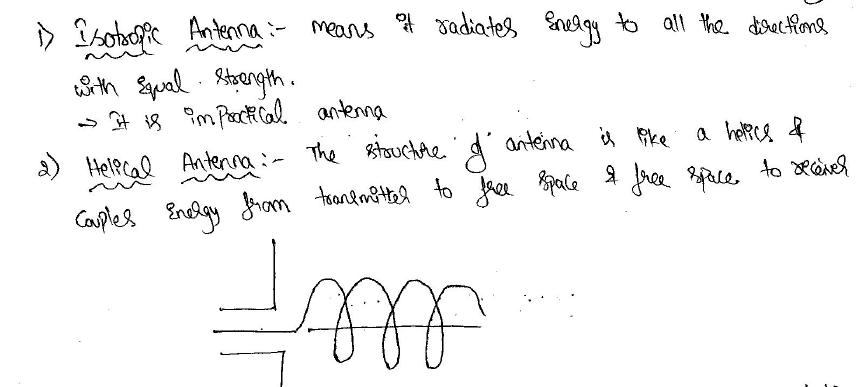 1) Isotropic Antenna :- means it radiates Energy to all the directions
with Equal. Strength.
→ It is impractical antenna
2) Helical Antenna :- The structure of antenna is like a helics &
Couples Energy from transmitter to free space & free space to receiver